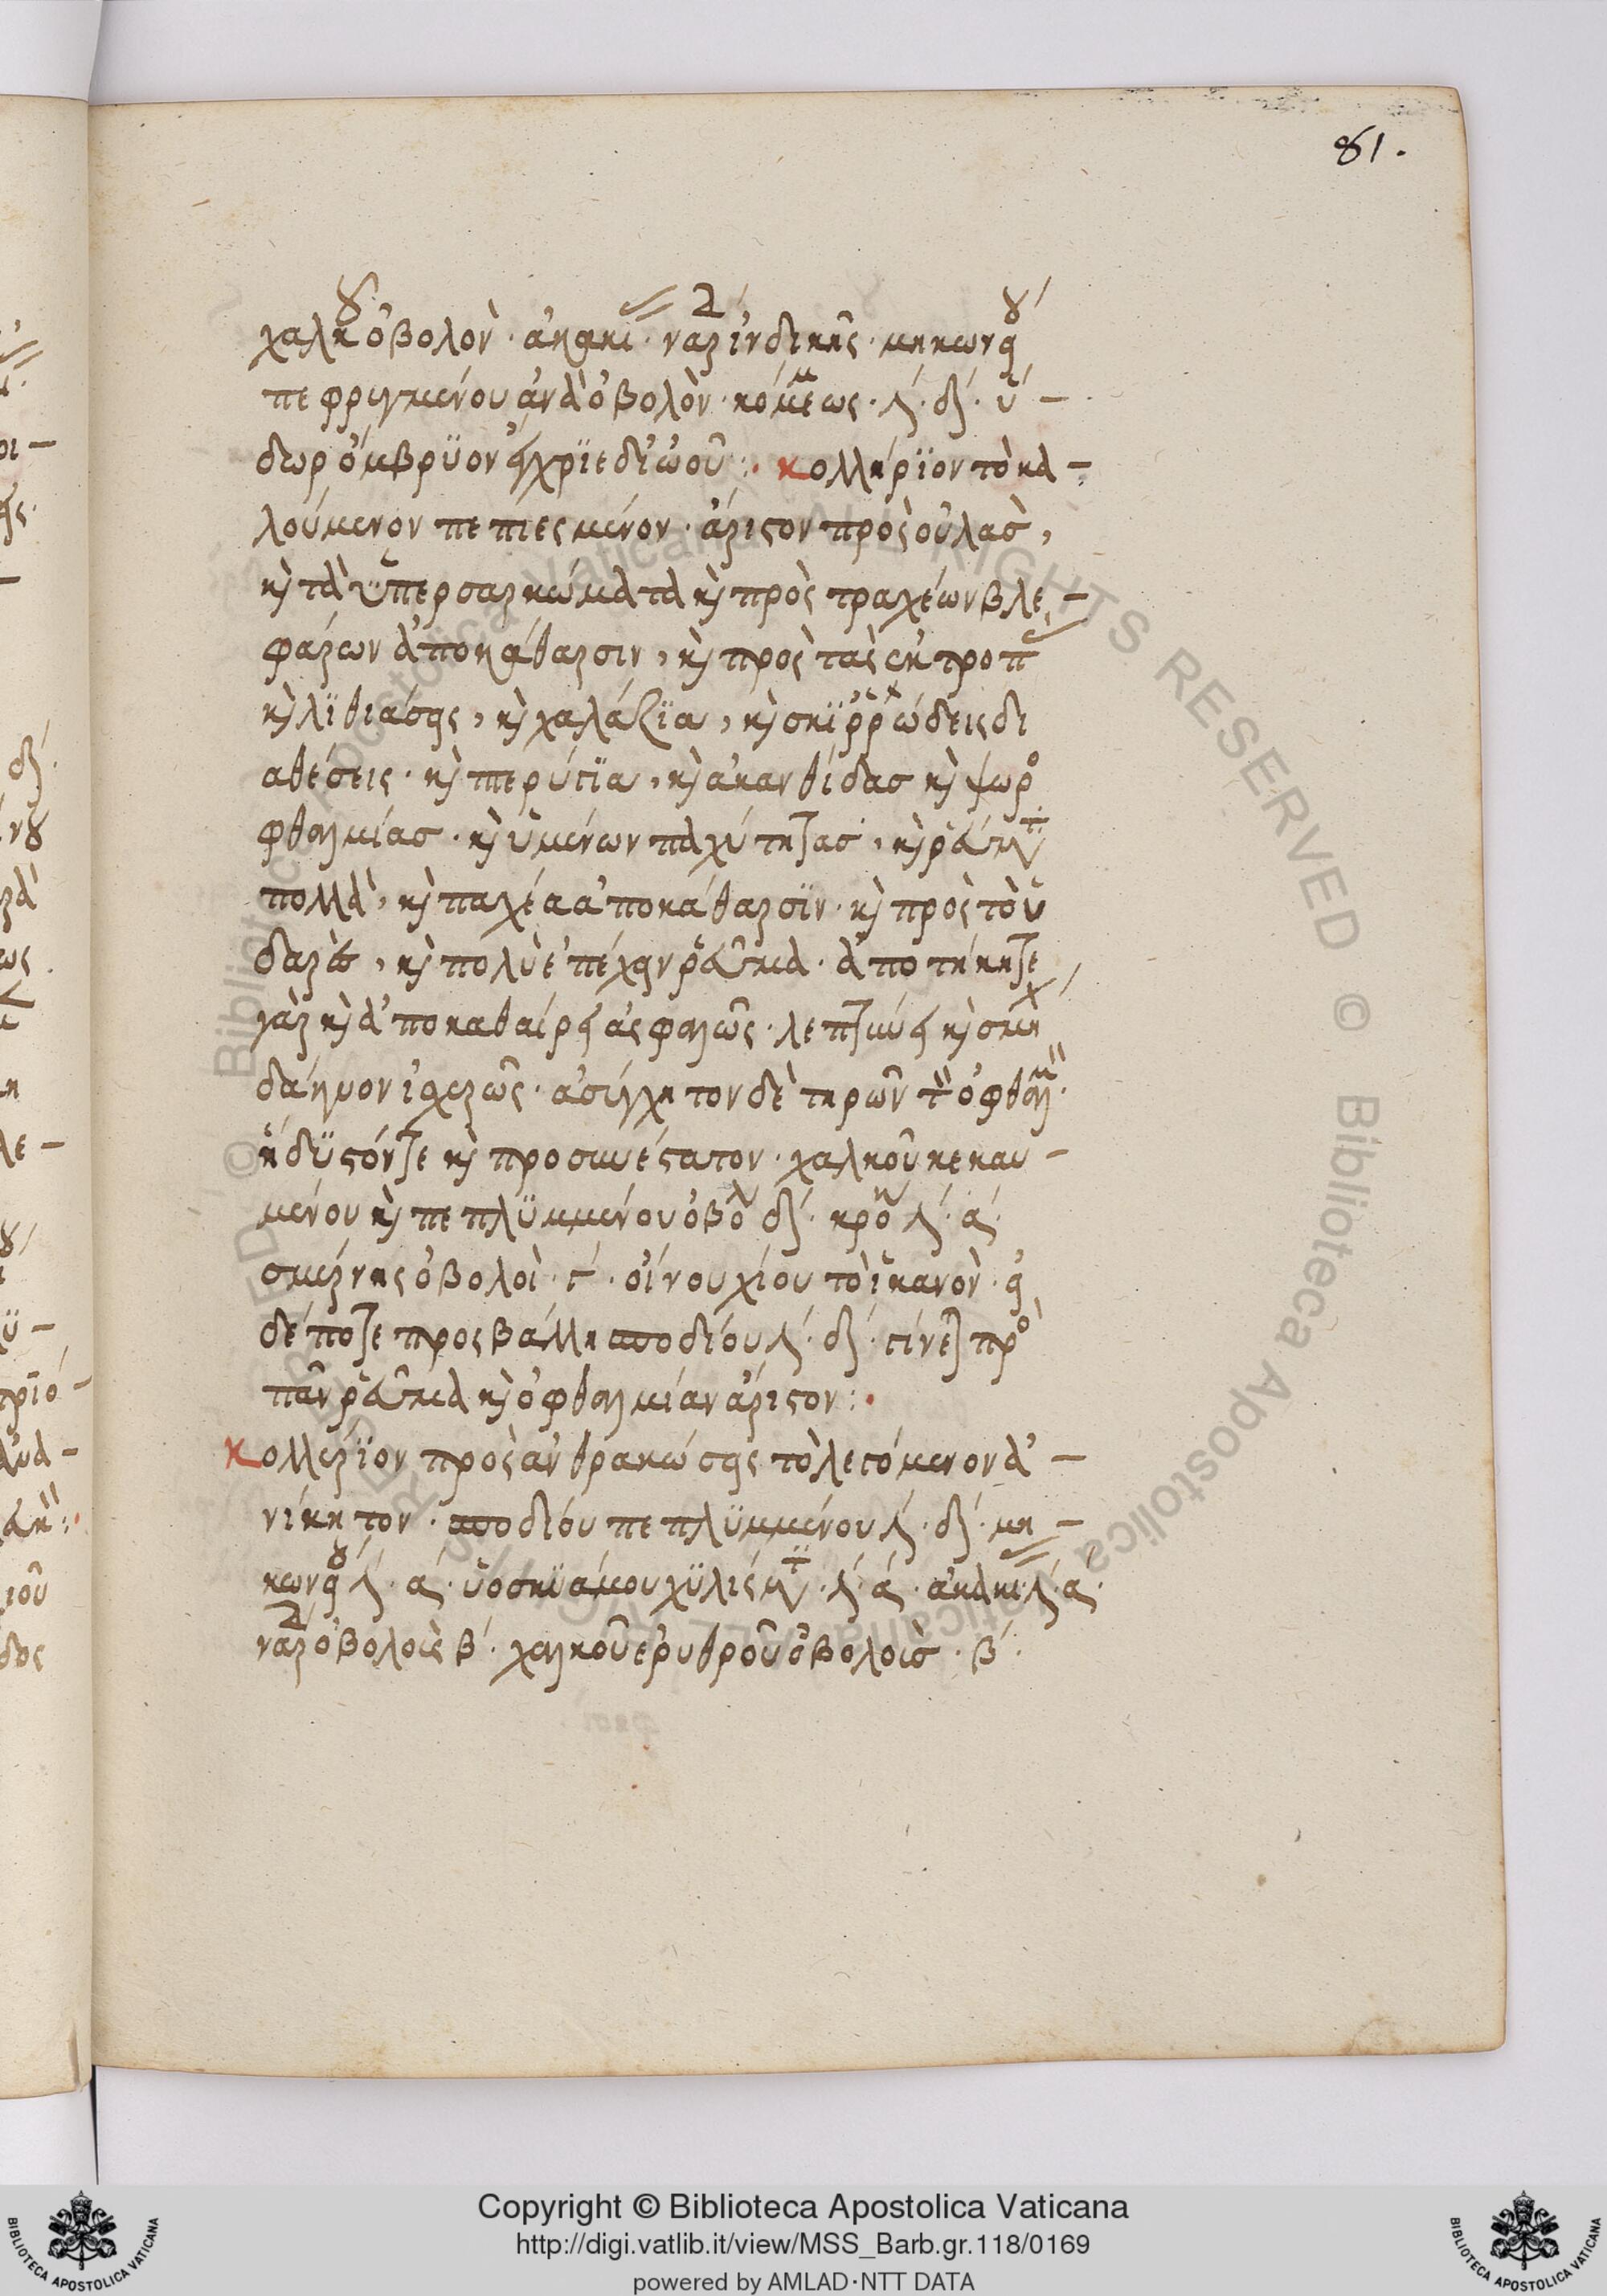 81.
χαλκοῦ ὀβολὸν · ἀκακι · ναρ ἰνδικῆς · μηκωνει
πεφριγμένου ἀνὰ ὀβολὸν · κόμεως · ὕ –
δωρ ὀμβρϋον · κολλήρϊον τὸ κα –
λούμενον πεπιεςμένον · ἄριστον πρὸς οὐλὰσ,
καὶ τὰ ὑπερσαρκώματα καὶ πρὸς τραχέων βλε –
φάρων ἀποκάθαρσιν, καὶ πρὸς τὰς ἐκτροπ
καὶ λϊθιάσεις, καὶ χαλάζϊα, καὶ σκϊρρώδεις δι
αθέσεις · καὶ πτερύγϊα, καὶ ἀκανθίδασ καὶ ψωρο
φθαλμίασ · καὶ ὑμένων παχύτητασ, καὶ ῥευμ
πολλὰ, καὶ παχέα ἀποκάθαρσϊν · καὶ πρὸς τὸ ὑ
δαρὲσ, καὶ πολὺ ἐπέχειν ῥεῦμα · ἀποτήκητε
γὰρ καὶ ἀποκαθαίρει ἀσφαλῶς · λεπτύνει καὶ σμη
δαήμον · ἀσύγχητον δὲ τηρῶν τ ὀφθαλ ·
ἡδϋστόντε καὶ προσηνέστατον · χαλκοῦ κεκαυ –
μένου καὶ πεπλϋμμένου ὀβο · κρο · α ·
σμύρνης ὀβολοὶ · γ · οἴνου χίου τὸ ἱκανὸν · εἰ
δέποτε προςβάλλη σποδίου · γίνεται προ
πᾶν ῥεῦμα καὶ ὀφθαλμίαν ἄριστον :
κολλύρϊον πρὸς ἀνθρακώσεις τὸ λεγόμενον ἀ –
νίκητον · σποδίου πεπλϋμμένου · μη –
κωνει · α · ὑοσκϋάμου χϋλίσμ · α · ἀκακι · α ·
ναρ ὀβολοὺς β · χαλκοῦ ἐρυθροῦ ὀβολοὺσ · β ·
Copyright © Biblioteca Apostolica Vaticana
http://digi.vatlib.it/view/MSS_Barb.gr.118/0169
powered by AMLAD·NTT DATA